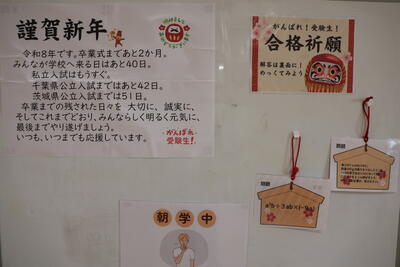 謹賀新年
令和8年です。卒業式まであと2か月。
みんなが学校へ来る日はあと40日。
私立入試はもうすぐ。
千葉県公立入試まではあと42日。
茨城県公立入試までは51日。
卒業までの残された日々を 大切に、誠実に、
そしてこれまでどおり、みんならしく明るく元気に、
最後までやり遂げましょう。
いつも、いつまでも応援しています。
がんばれ
受験生!
がんばれ!受験生!
合格祈願
解答は裏面に!
めくってみよう
問題
問題
朝学中